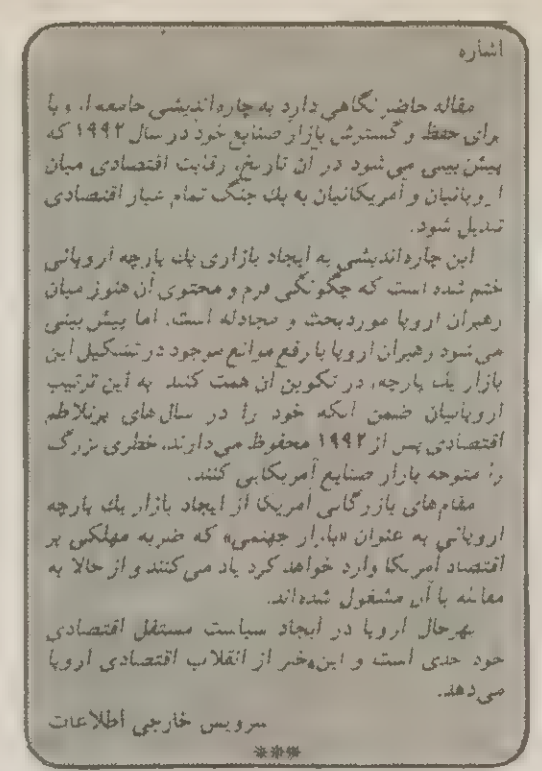 اشاره
مقاله حاضر نگاهی دارد به چاره‌اندیشی جامعه اروپا
برای حفظ و گسترش بازار صنایع خود در سال ۱۹۹۲ که
پیش‌بینی می‌شود در آن تاریخ، رقابت اقتصادی میان
اروپائیان و آمریکائیان به یک جنگ تمام عیار اقتصادی
تبدیل شود.
این چاره‌اندیشی به ایجاد بازاری یک پارچه اروپائی
ختم شده است که چگونگی فرم و محتوی آن هنوز میان
رهبران اروپا مورد بحث و مجادله است. اما پیش‌بینی
می‌شود رهبران اروپا با رفع موانع موجود در تشکیل این
بازار یک پارچه، در تکوین آن همت کنند به این ترتیب
اروپائیان ضمن آنکه خود را در سال‌های پرتلاطم
اقتصادی پس از ۱۹۹۲ محفوظ می‌دارند، خطری بزرگ
را متوجه بازار صنایع آمریکایی کنند.
مقام‌های بازرگانی آمریکا از ایجاد بازار یک پارچه
اروپائی به عنوان «بازار جهنمی» که ضربه مهلکی بر
اقتصاد آمریکا وارد خواهد کرد یاد می‌کنند و از حالا به
مقابله با آن مشغول شده‌اند.
بهرحال اروپا در ایجاد سیاست مستقل اقتصادی
خود جدی است و این خبر از انقلاب اقتصادی اروپا
می‌دهد.
سرویس خارجی اطلاعات
***